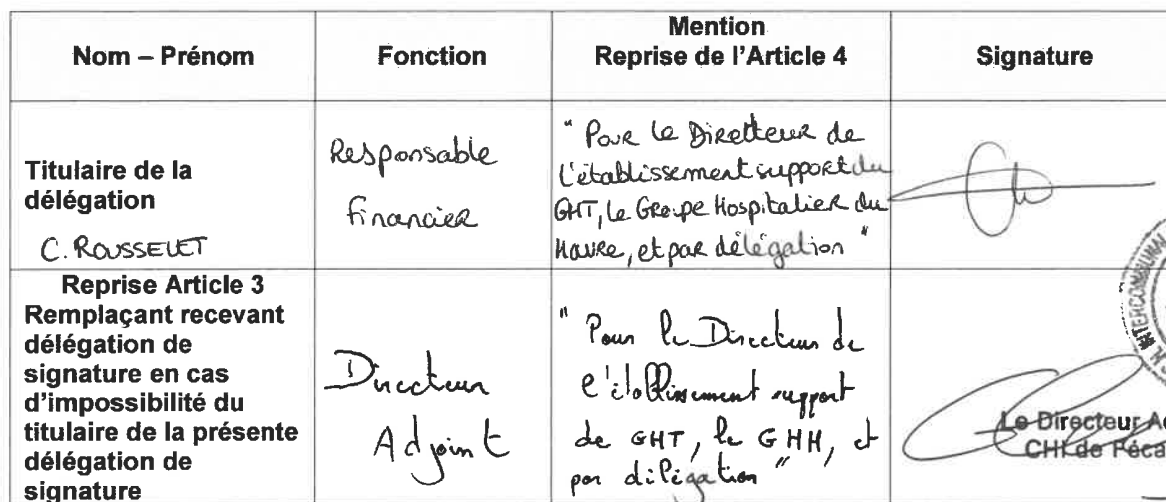 Nom – Prénom
Fonction
Mention
Reprise de l'Article 4
Signature
Titulaire de la
délégation
C. ROUSSELET
Responsable
financier
" Pour le Directeur de
l'établissement support du
GHT, le Groupe Hospitalier du
Havre, et par délégation "
Reprise Article 3
Remplaçant recevant
délégation de
signature en cas
d'impossibilité du
titulaire de la présente
délégation de
signature
Directeur
Adjoint
" Pour le Directeur de
l'établissement support
de GHT, le GHH, et
par délégation "
Le Directeur Ad
CHI de Féca
INTERCOMMUNAL